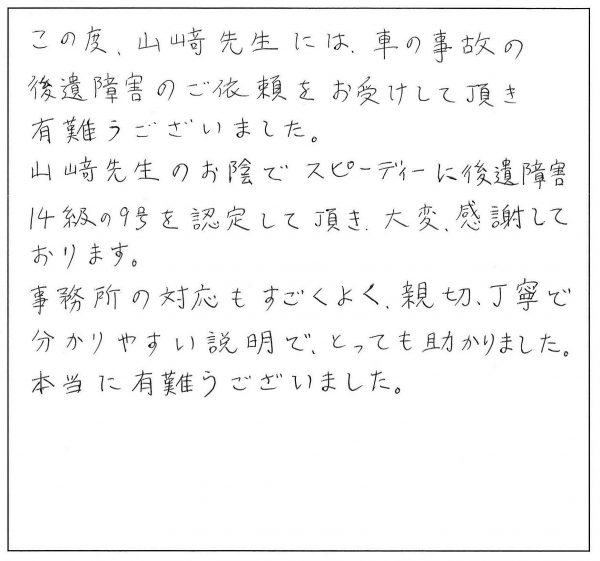 この度、山﨑先生には、車の事故の
後遺障害のご依頼をお受けして頂き
有難うございました。
山﨑先生のお陰でスピーディーに後遺障害
14級の9号を認定して頂き、大変、感謝して
おります。
事務所の対応もすごくよく、親切、丁寧で
分かりやすい説明で、とっても助かりました。
本当に有難うございました。